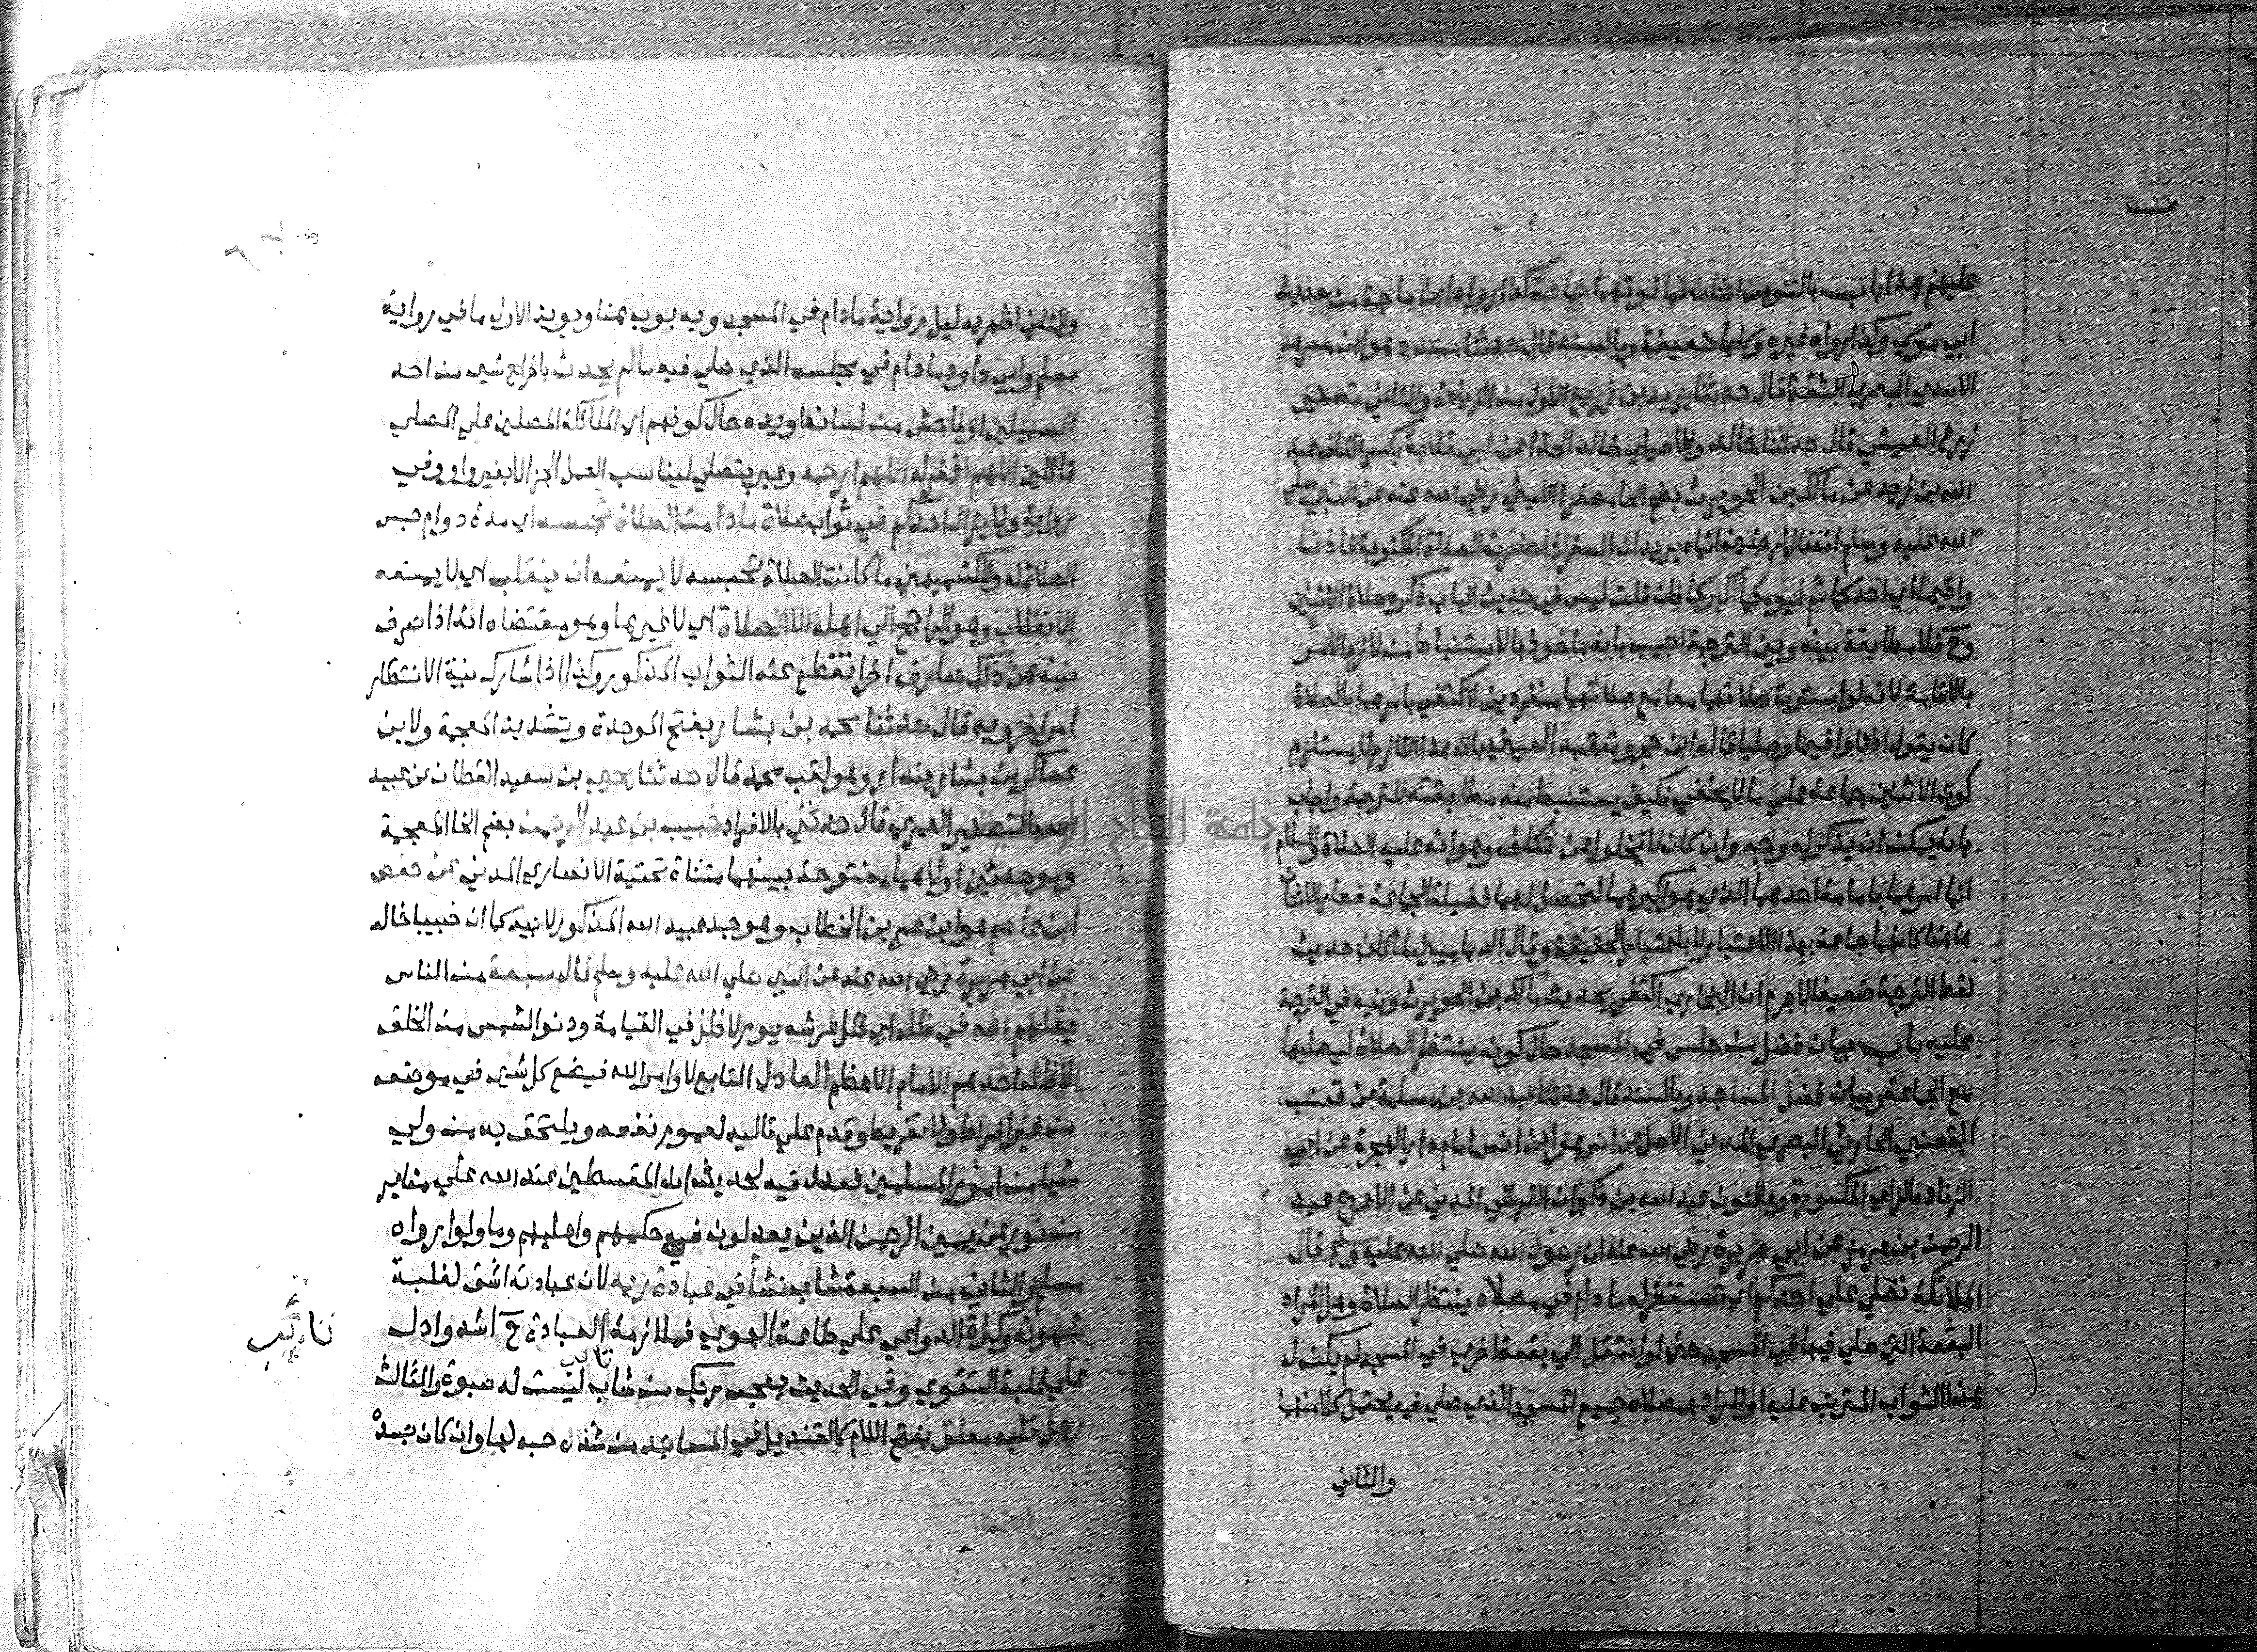 عليهم هذا باب بالتنوين اثنان فما فوقهما جماعة كذا رواه ابن ماجة من حديث
ابي موسي وكذا رواه غيره وكلها ضعيفة وبالسند قال حدثنا مسدد وهو ابن مسرهد
الاسدي البصري الثقة قال حدثنا يزيد بن زريع الاول من الزيادة والثاني تصغير
زرع العيشي قال حدثنا خالد وللاصيلي خالد الحذا عن ابي قلابة بكسر القاف عبد
الله بن زيد عن مالك بن الحويرث بضم الحا مصغرا الليثي رضي الله عنه عن النبي صلي
الله عليه وسلم انه قال لرجلين اتياه يريدان السفر اذا حضرت الصلاة المكتوبة فاذنا
واقيما اي احدكما ثم ليومكما اكبركما فان قلت ليس في حديث الباب ذكر صلاة الاثنين
وح فلا مطابقة بينه وبين الترجمة اجيب بانه ماخوذ بالاستنباط من لازم الامر
بالاقامة لانه لو استوت صلاتهما معا مع صلاتهما منفردين لاكتفي بامرهما بالصلاة
كان يقول اذنا واقيما وصليا قاله ابن حجر وتعقبه العيني بان هذا اللازم لا يستلزم
كون الاثنين جماعة علي ما لا يخفي فكيف يستنبط منه مطابقته للترجمة واجاب
بانه يمكن ان يذكر له وجه وان كان لا يخلوا عن تكلف وهو انه عليه الصلاة والسلام
انما امرهما بامامة احدهما الذي هو اكبرهما لتحصل لهما فضيلة الجماعة فصار الاثنان
هاهنا كانهما جماعة بهذا الاعتبار لا باعتبار الحقيقة وقال الدماميني لما كان حديث
لفظ الترجمة ضعيفا لاجرم ان البخاري اكتفي بحديث مالك بن الحويرث ونبه في الترجمة
عليه باب بيان فضل من جلس في المسجد حال كونه ينتظر الصلاة ليصليها
مع الجماعة وبيان فضل المساجد وبالسند قال حدثنا عبد الله بن مسلمة بن قعنب
القعنبي الحارثي البصري المدني الاصل عن انس هو ابن انس امام دار الهجرة عن ابي
الزناد بالزاي المكسورة وبالنون عبد الله بن ذكوان القرشي المدني عن الاعرج عبد
الرحمن بن هرمز عن ابي هريرة رضي الله عنه ان رسول الله صلي الله عليه وسلم قال
الملائكة تصلي علي احدكم اي تستغفر له ما دام في مصلاه ينتظر الصلاة وهل المراد
البقعة التي صلي فيها في المسجد حتي لو انتقل الي بقعة اخري في المسجد لم يكن له
هذا الثواب المترتب عليه او المراد بمصلاه جميع المسجد الذي صلي فيه يحتمل كلا منهما
والثاني
والثاني اظهر بدليل رواية ما دام في المسجد وبه بوب هنا ويويد الاول ما في رواية
مسلم وابي داود ما دام في مجلسه الذي صلي فيه ما لم يحدث باخراج شي من احد
السبيلين او فاحش من لسانه او يده حال كونهم اي الملائكة المصلين علي المصلي
قائلين اللهم اغفر له اللهم ارحمه وعبر بتصلي ليناسب العمل الجزا لا بغير واو وفي
رواية ولا يزال احدكم في ثواب صلاة ما دامت الصلاة تحبسه اي مدة دوام حبس
الصلاة له وللكشميهني ما كانت الصلاة تحبسه لا يمنعه ان ينقلب اي لا يمنعه
الانقلاب وهو الرجع الي اهله الا الصلاة اي لا غيرها وهو مقتضاه انه اذا صرف
نيته عن ذلك صارف اخر انقطع عنه الثواب المذكور وكذا اذا شارك نية الانتظار
امر اخر وبه قال حدثنا محمد بن بشار بفتح الموحدة وتشديد المعجمة ولابن
عساكر ابن بشار بندار وهو لقب محمد قال حدثنا يحيي بن سعيد القطان عن عبيد
الله بالتصغير العمري قال حدثني بالافراد خبيب بن عبد الرحمن بضم الخا المعجمة
وبوحدتين اولاهما مفتوحة بينهما مثناة تحتية الانصاري المدني عن حفص
ابن عاصم هو ابن عمر بن الخطاب وهو جد عبيد الله المذكور لابيه كما ان خبيبا خاله
عن ابي هريرة رضي الله عنه عن النبي صلي الله عليه وسلم قال سبعة من الناس
يظلهم الله في ظله اي ظل عرشه يوم لا ظل في القيامة ودنو الشمس من الخلق
الا ظله احدهم الامام الاعظم العادل التابع لاوامر الله فيضع كل شي في موضعه
من غير افراط ولا تفريط وقدم علي تاليه لعموم نفعه ويلتحق به من ولي
شيا من امور المسلمين فعدل فيه لحديث ان المقسطين عند الله علي منابر
من نور عن يمين الرحمن الذين يعدلون في حكمهم واهليهم وما ولوا رواه
مسلم والثاني من السبعة شاب نشأ في عبادة ربه لان عبادته اشق لغلبة
شهوته وكثرة الدواعي علي طاعة الهوي فملازمة العبادة ح اشد وادل
علي غلبة التقوي وفي الحديث يعجب ربك من شاب ليست له صبوة والثالث
رجل قلبه معلق بفتح اللام كالقنديل في المساجد من شدة حبه لها وان كان جسده
جامعة النجاح الوطنية